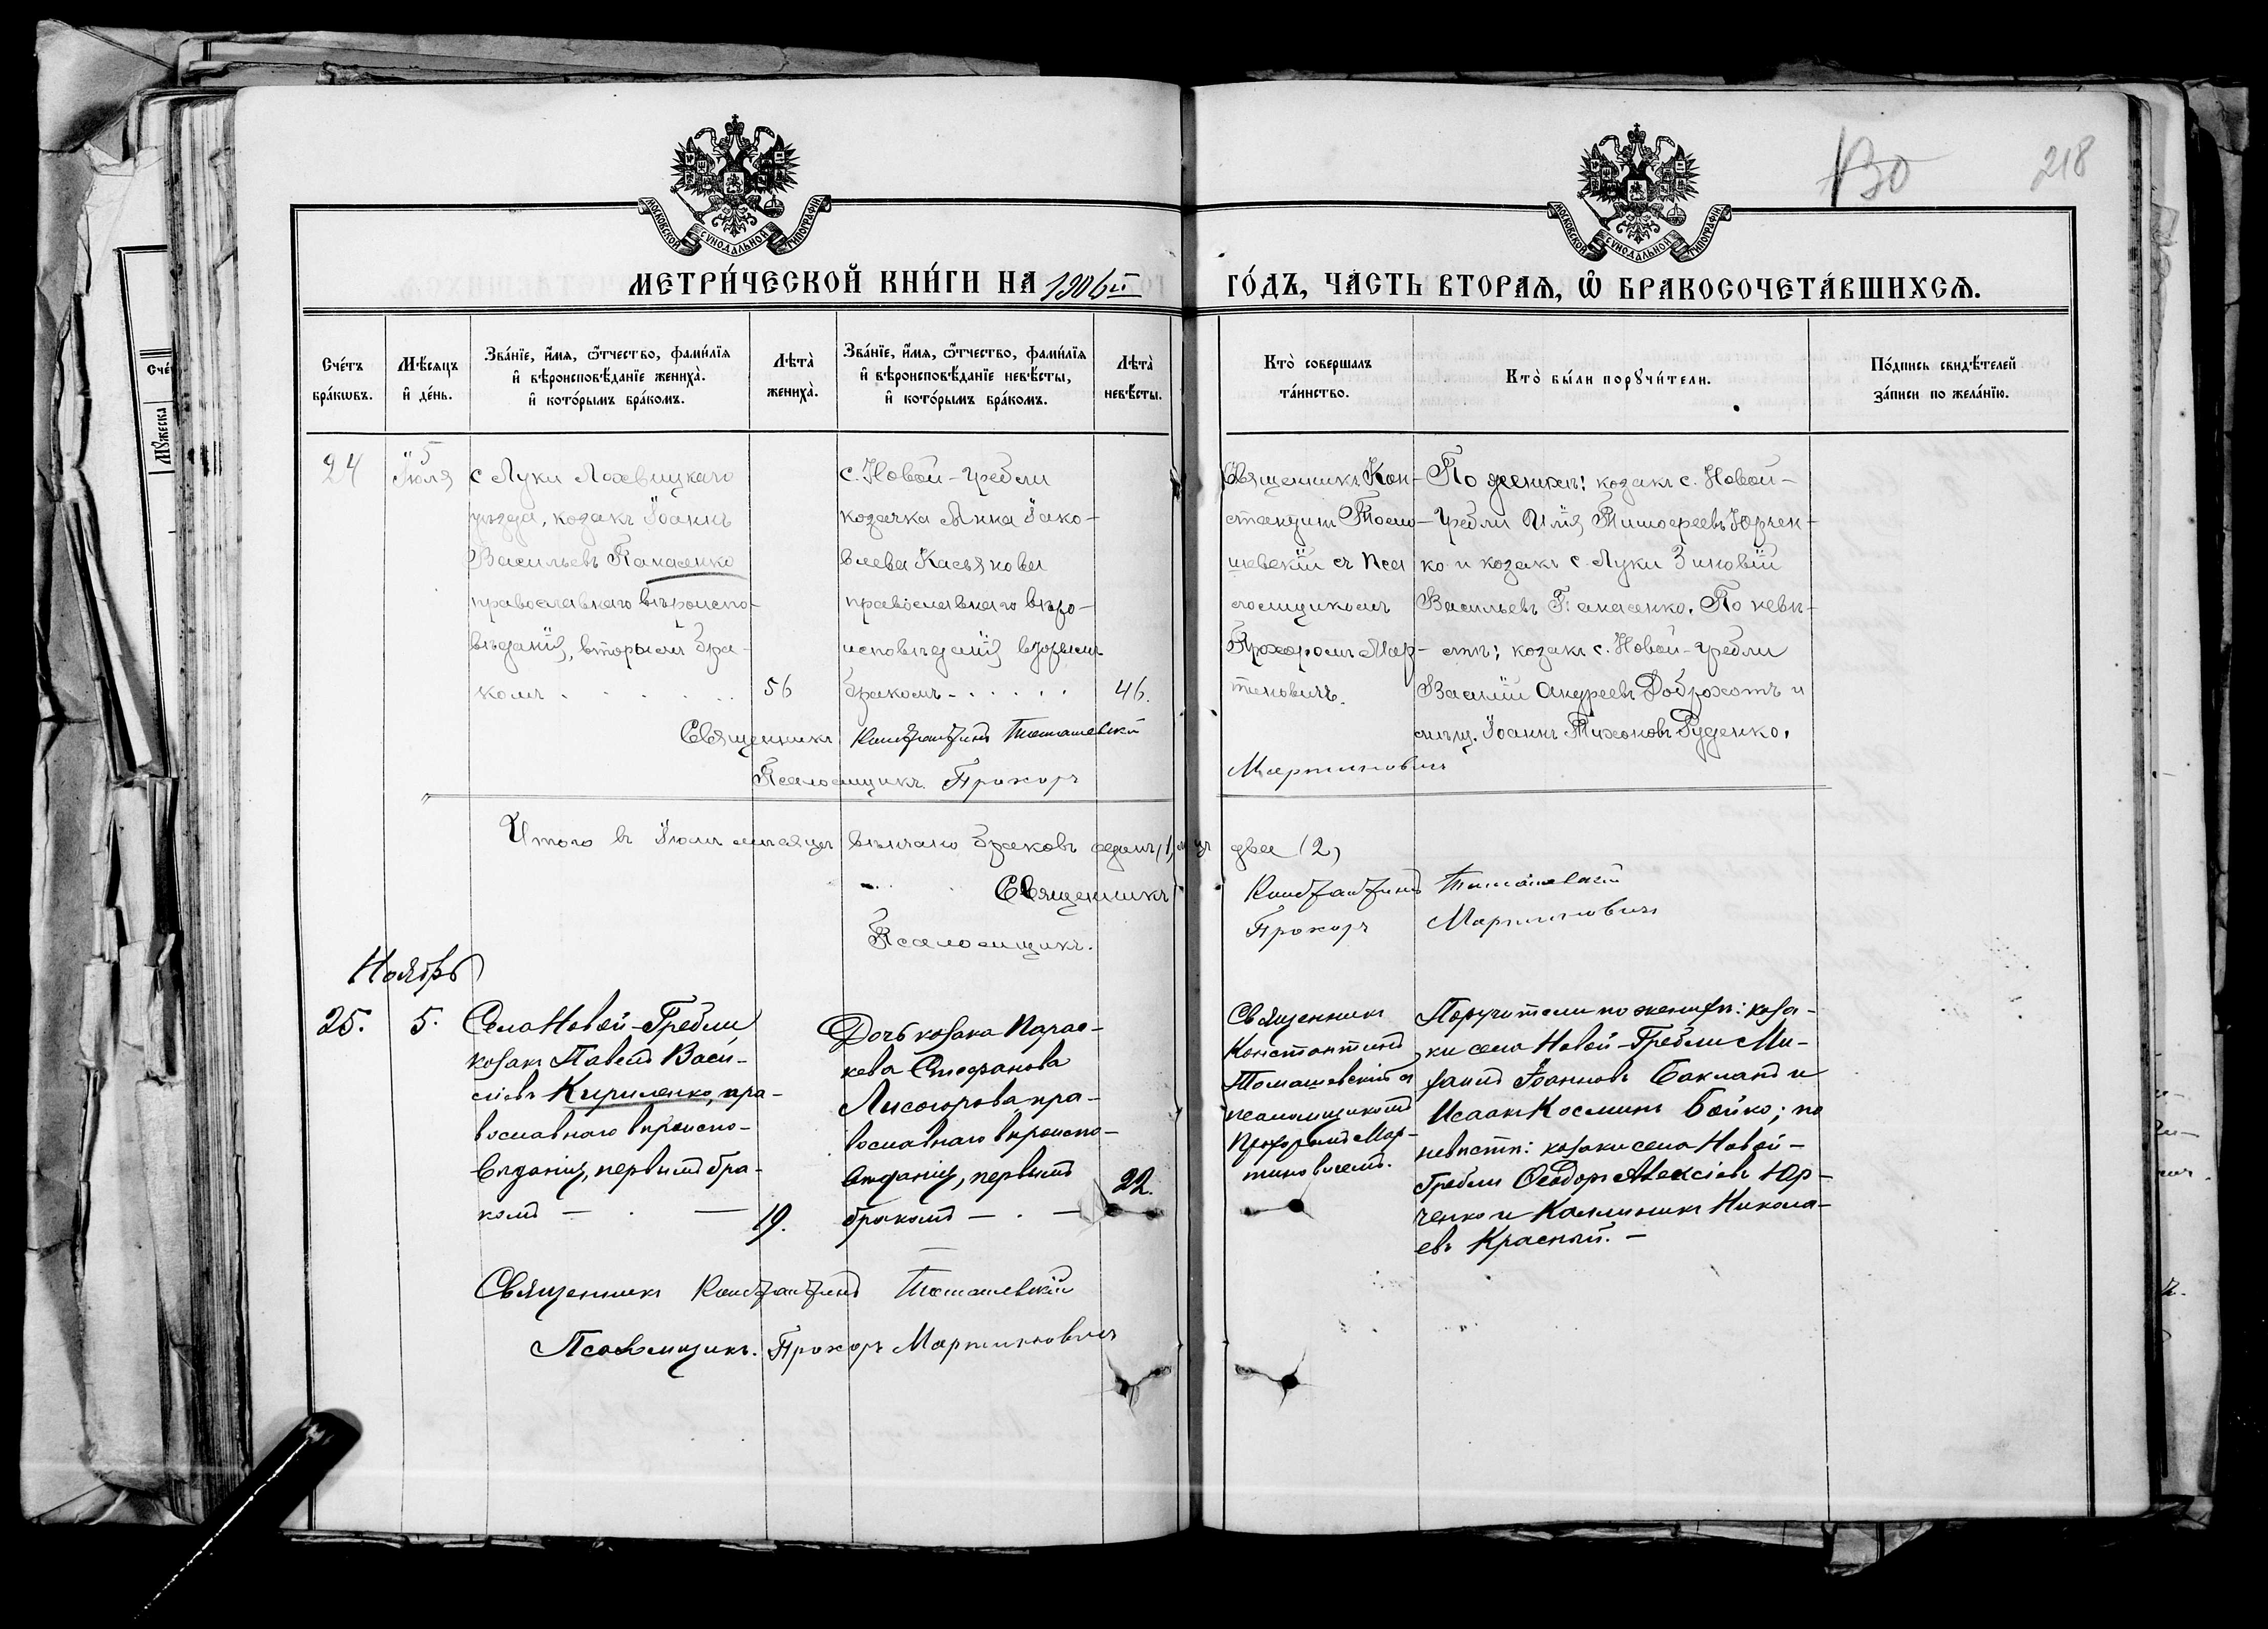 130
218
МОСКОВСКОЙ СУНОДАЛЬНОЙ ТИПОГРАФІИ
МОСКОВСКОЙ СУНОДАЛЬНОЙ ТИПОГРАФІИ
МЕТРИ́ЧЕСКОЙ КНИ́ГИ НА 1906й ГО́ДЪ, ЧА́СТЬ ВТОРАѦ, Ѡ҆ БРАКОСОЧЕТА́ВШИХСѦ.
Сче́тъ бра́кѡвъ.
Мѣ́сяцъ и҆ де́нь.
Зва́нїе, и҆́мѧ, ѻ҆́тчество, фами́лїѧ и҆ вѣроисповѣ́данїе жениха̀. и҆ кото́рымъ бра́комъ.
Лѣта̀ жениха̀.
Зва́нїе, и҆́мѧ, ѻ҆́тчество, фами́лїѧ и҆ вѣроисповѣ́данїе невѣ́сты, и҆ кото́рымъ бра́комъ.
Лѣта̀ невѣ́сты.
Кто̀ соверша́лъ та́инство.
Кто̀ бы́ли порꙋчи́тели.
По́дпись свидѣ́телей за́писи по жела́нїю.
24
5
Іюля
с Луки Лохвицкаго
уѣзда, козакъ Іоаннъ
Васильевъ Панасенко
православнаго вѣроиспо-
вѣданія, вторымъ бра-
комъ . . . . .
56
с. Новой-Гребли
козачка Анна Іако-
влева Касьянова
православнаго вѣро-
исповѣданія вторымъ
бракомъ - . . . .
46.
Священникъ Кон-
стантин Тома-
шевскій съ Пса
ломщикомъ
Прохоромъ Мар-
тиновичъ.
По женихѣ: козакъ с. Новой-
Гребли Илія Тимофеевъ Юрчен-
ко и козакъ с. Луки Зиновій
Васильевъ Панасенко. По невѣ-
стѣ: козакъ с. Новой-Гребли
Василій Андреевъ Доброхотъ и
мѣщ. Іоаннъ Тихоновъ Руденко.
Священникъ Константинъ Томашевскій
Псаломщикъ Прохоръ Мартиновичъ
Итого въ Іюлѣ мѣсяцѣ вѣнчано браковъ два (2)
Священникъ Константинъ Томашевскій
Псаломщикъ. Прохоръ Мартиновичъ
Ноябрь
25.
5.
Села Новой-Гребли
козакъ Павелъ Васи-
ліевъ Кириленко, пра-
вославнаго вѣроиспо-
вѣданія, первымъ бра-
комъ — . —
19.
Дочь козака Парас-
кева Стефанова
Лисогорова пра-
вославнаго вѣроиспо-
вѣданія, первымъ
бракомъ — . —
22.
Священникъ
Константинъ
Томашевскій съ
псаломщикомъ
Прохоромъ Мар-
тиновичемъ.
Поручители по женихѣ: коза-
ки села Новой-Гребли Ми-
хаилъ Іоанновъ Бакланъ и
Исаакъ Косминъ Бойко; по
невѣстѣ: козаки села Новой-
Гребли Ѳеодоръ Алексіевъ Юр-
ченко и Каллиникъ Никола-
евъ Красный. —
Священникъ Константинъ Томашевскій
Псаломщикъ. Прохоръ Мартиновичъ